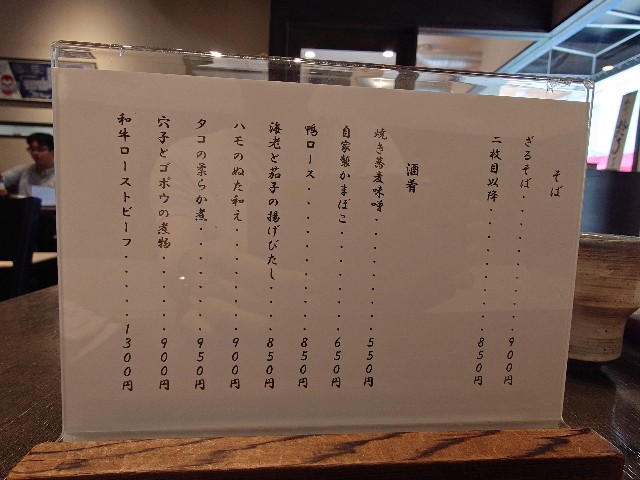 そば
ざるそば・・・・・・・・・・・900円
二枚目以降・・・・・・・・・・850円
酒肴
焼き蕎麦味噌・・・・・・・・・550円
自家製かまぼこ・・・・・・・・650円
鴨ロース・・・・・・・・・・・850円
海老と茄子の揚げびたし・・・・850円
ハモのぬた和え・・・・・・・・900円
タコの柔らか煮・・・・・・・・950円
穴子とゴボウの煮物・・・・・・900円
和牛ローストビーフ・・・・・・1300円